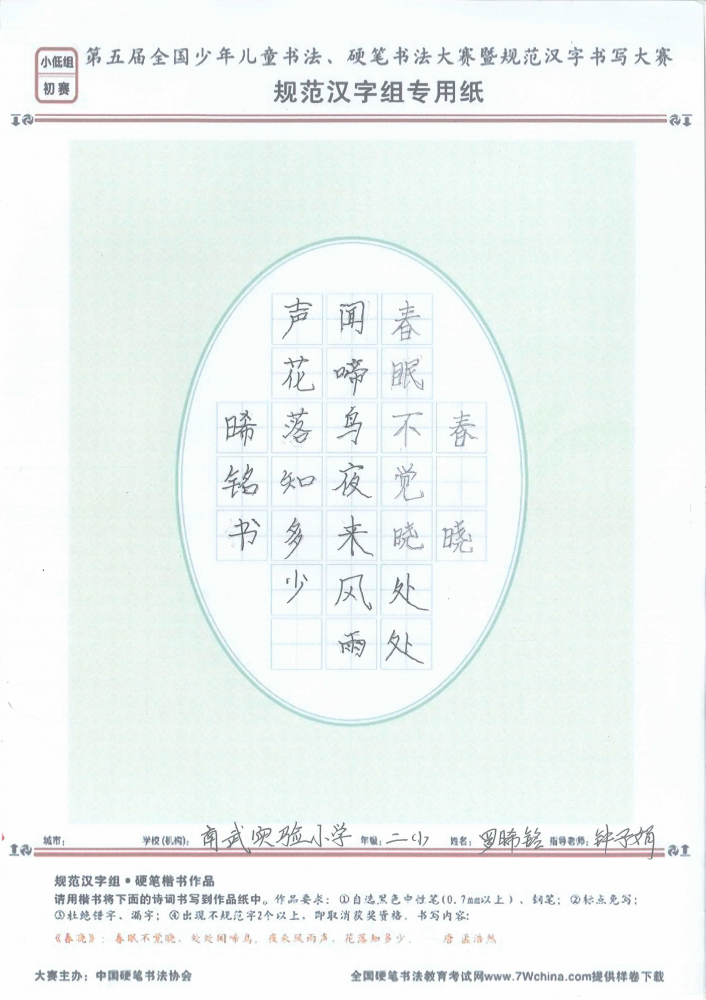 小低组
初赛
第五届全国少年儿童书法、硬笔书法大赛暨规范汉字书写大赛
规范汉字组专用纸
春晓
春眠不觉晓处处
闻啼鸟夜来风雨
声花落知多少
晞铭书
城市： 学校(机构)：南武实验小学 年级：二小 姓名：罗晞铭 指导老师：钟子娟
规范汉字组•硬笔楷书作品
请用楷书将下面的诗词书写到作品纸中。作品要求：①自选黑色中性笔(0.7mm以上)、钢笔；②标点免写；
③杜绝错字、漏字；④出现不规范字2个以上，即取消获奖资格。书写内容：
《春晓》：春眠不觉晓，处处闻啼鸟，夜来风雨声，花落知多少。——唐 孟浩然
大赛主办：中国硬笔书法协会 全国硬笔书法教育考试网www.7Wchina.com提供样卷下载